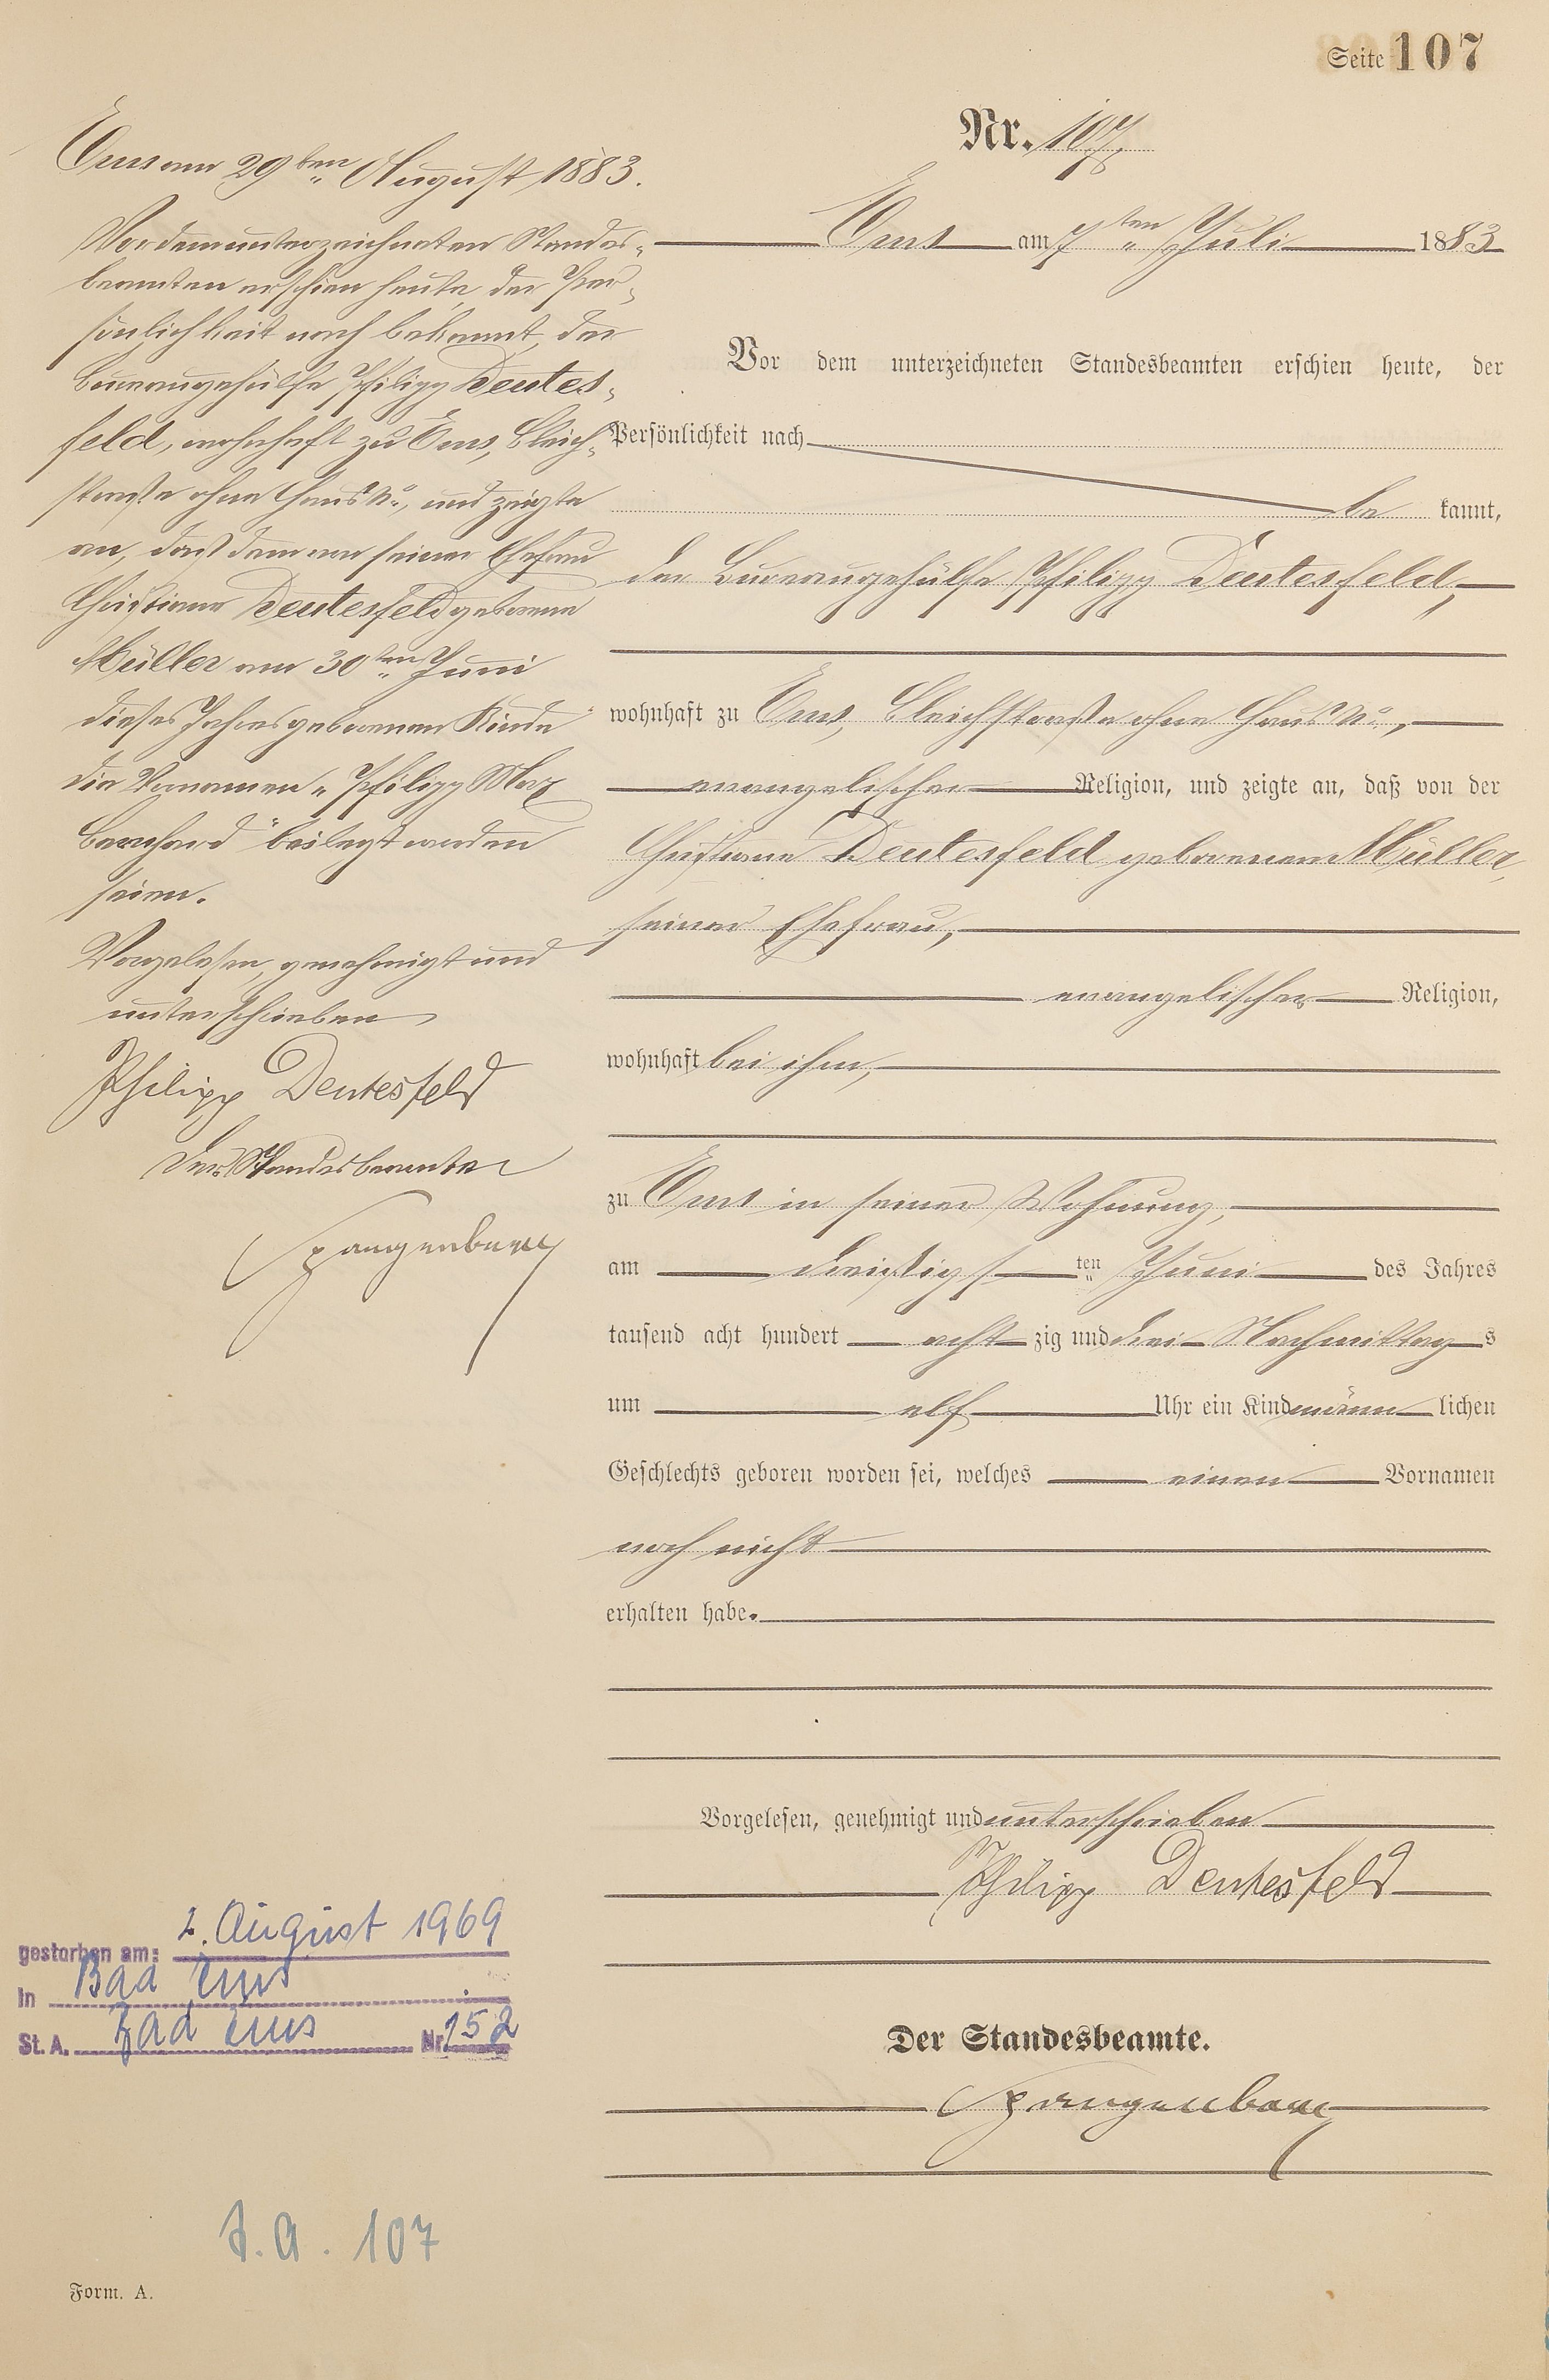 Seite 107
Nr. 107.
Ems am 7ten Juli 1883
Vor dem unterzeichneten Standesbeamten erschien heute, der
Persönlichkeit nach
be kannt,
der Bureaugehülfe Philipp Deutesfeld,
wohnhaft zu Ems, Bleichstraße ohne Haus No.,
evangelischer Religion, und zeigte an, daß von der
Christiane Deutesfeld geborenen Müller,
seiner Ehefrau,
evangelischer Religion,
wohnhaft bei ihm,
zu Ems in seiner Wohnung,
am dreißigsten Juni des Jahres
tausend acht hundert acht zig und drei Nachmittags
um elf Uhr ein Kind männ lichen
Geschlechts geboren worden sei, welches einen Vornamen
noch nicht
erhalten habe.
Vorgelesen, genehmigt und unterschrieben
Philipp Deutesfeld
Der Standesbeamte.
Spangenberg
Ems am 29ten August 1883.
Vor dem unterzeichneten Standes-
beamten erschien heute, der Per-
sönlichkeit nach bekannt, der
Bureaugehülfe Philipp Deutes-
feld, wohnhaft zu Ems, Bleich-
straße ohne Haus No., und zeigte
an, daß dem von seiner Ehefrau
Christiane Deutesfeld geborene
Müller am 30ten Juni
dieses Jahres geborenen Kinde
die Vornamen „Philipp Max
Bernhard" beilegt worden
seien.
Vorgelesen, genehmigt und
unterschrieben
Philipp Deutesfeld
Der Standesbeamte
Spangenberg
gestorben am: 2. August 1969
in Bad Ems
St. A. Bad Ems Nr. 152
S.A. 107
Form. A.